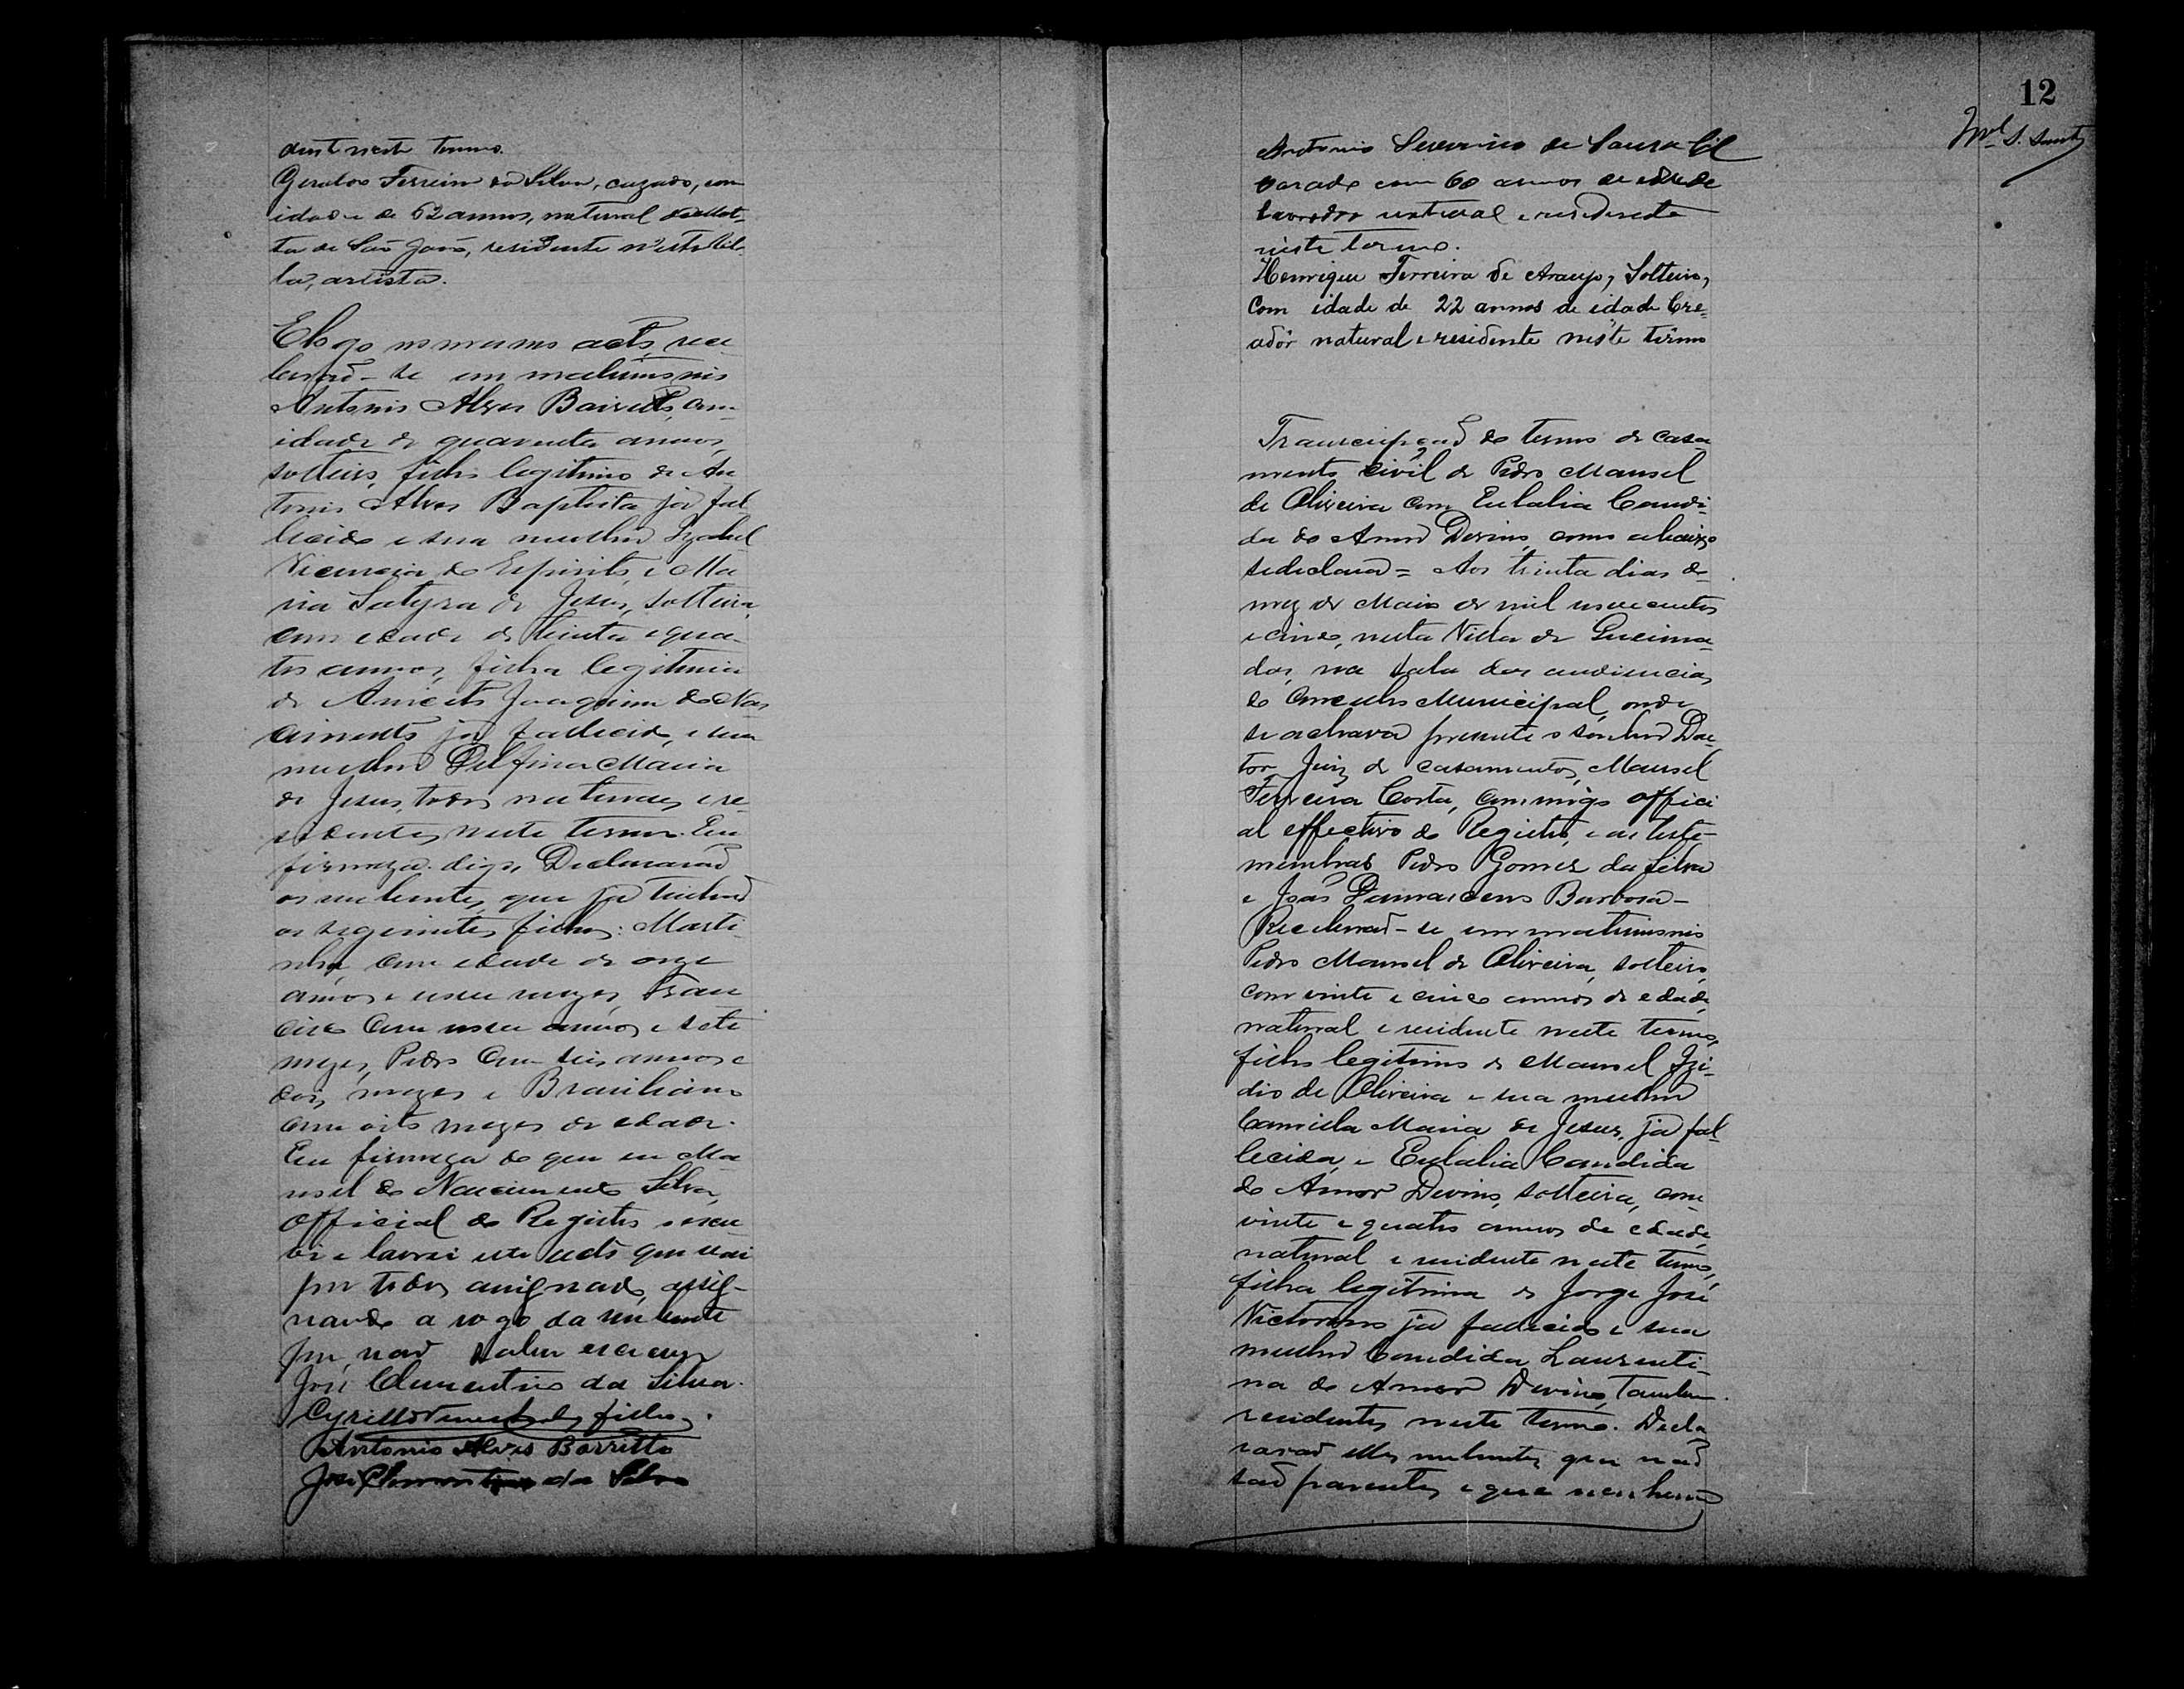 dente neste termo.
Geraldo Ferreira da Silva, cazado, com
idade de 62 annos, natural da Mat-
ta de São João, residente n'esta Vil-
la, artista.
E logo no mesmo acto, rece
berão-se em matrimonio
Antonio Alves Barretto, com
idade de quarenta annos,
solteiro, filho legitimo de An
tonio Alves Baptista já fal
lecido e sua mulher Izabel
Vicencia do Espirito, e Ma
ria Satyra de Jesus, solteira,
com edade de trinta e qua
tro annos, filha legitima
de Aniceto Joaquim do Nas
cimento já fallecido, e sua
mulher Delfina Maria
de Jesus, todos naturaes e re
sidentes neste termo. Em
firmeza digo, Declararão
os nubentes, que já tinhão
os seguintes filhos: Marti
nha, com edade de onze
annos e nove mezes, Fran
cisco com nove annos e sete
mezes, Pedro com seis annos e
dois mezes e Brasiliano
com oito mezes de edade.
Em firmeza do que eu Ma
noel do Nascimento Silva,
Official do Registro escre
vi e lavrei este acto que vai
por todos assignado, assig-
nando a rogo da nubente
por não saber escrever
José Clementino da Silva.
Cyrillo filho.
Antonio Alves Barretto
José Clementino da Silva
12
Antonio Severino de Souza Gil
casado com 60 annos de edade
lavrador natural e residente
neste termo.
Henrique Ferreira de Araujo, Solteiro,
Com idade de 22 annos de idade Cre-
ador natural e residente neste termo
Transcripção do termo de casa
mento civil de Pedro Manoel
de Oliveira com Eulalia Candi-
da do Amor Divino, como abaixo
se declara = Aos trinta dias do
mez de Maio de mil novecentos
e cinco, nesta Villa de Queima-
das, na sala das audiencias
do Conselho Municipal, onde
se achava presente o senhor Dou
tor Juiz de casamentos, Manoel
Ferreira Costa, commigo offici
al effectivo do Registro, e as teste-
munhas Pedro Gomes da Silva
e João Damasceno Barbosa -
Receberão-se em matrimonio
Pedro Manoel de Oliveira, solteiro,
com vinte e cinco annos de edade,
natural e residente neste termo,
filho legitimo de Manoel Izi-
dio de Oliveira e sua mulher
Camilla Maria de Jesus, já fal-
lecida, e Eulalia Candida
do Amor Divino, solteira, com
vinte e quatro annos de edade,
natural e residente neste termo,
filha legitima de Jorge José
Victorino já fallecido e sua
mulher Candida Laurenti-
na do Amor Divino, tambem
residentes neste termo. Decla
rarão elles nubentes, que não
são parentes, e que nenhum